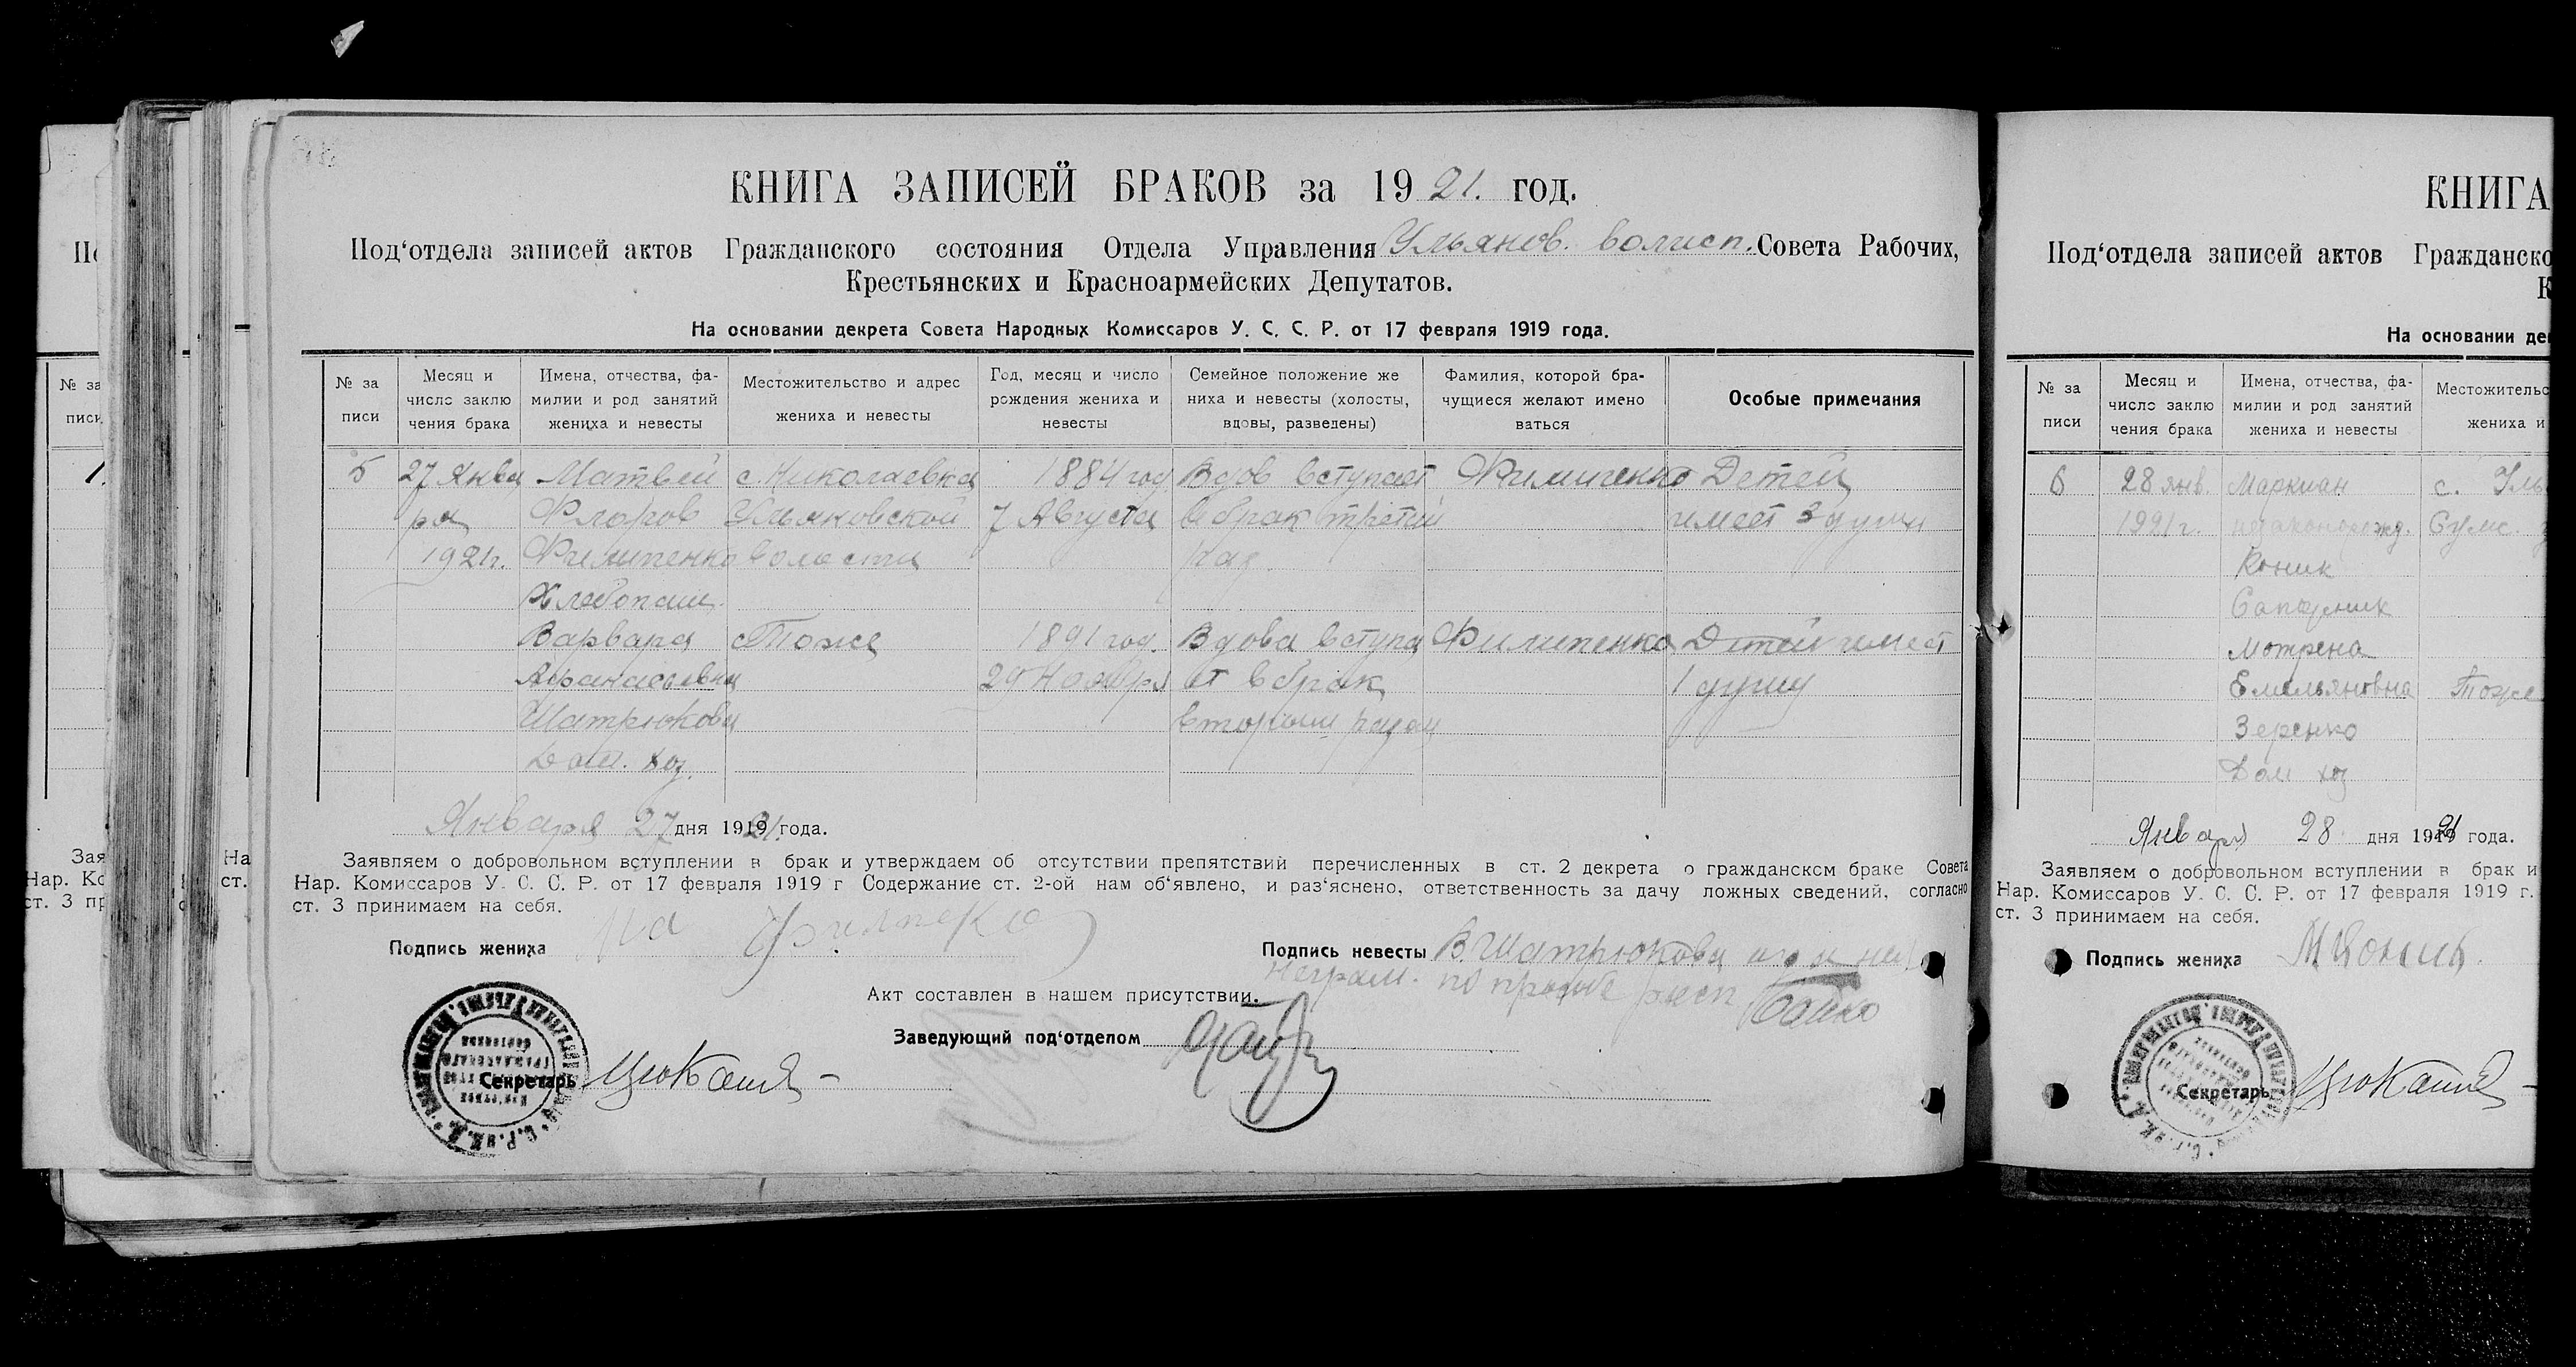 КНИГА ЗАПИСЕЙ БРАКОВ за 1921. год.
Под‘отдела записей актов Гражданского состояния Отдела Управления Ульянов. волисп. Совета Рабочих,
Крестьянских и Красноармейских Депутатов.
На основании декрета Совета Народных Комиссаров У. С. С. Р. от 17 февраля 1919 года.
№ за
писи
Месяц и
число заклю
чения брака
Имена, отчества, фа-
милии и род занятий
жениха и невесты
Местожительство и адрес
жениха и невесты
Год, месяц и число
рождения жениха и
невесты
Семейное положение же
ниха и невесты (холосты,
вдовы, разведены)
Фамилия, которой бра-
чущиеся желают имено
ваться
Особые примечания
5
27 Янва
ря
1921г.
Матвей
Флоров
Филипенко
Хлебопаш.
с. Николаевка
Ульяновской
волости
1884 год
7 Августа
Вдов вступает
в брак третий
раз
Филипенко
Детей
имеет 3 души
Варвара
Афанасьевна
Шатрюкова
Дом. хоз.
Тоже
1891 год.
29 Ноября
Вдова вступа
ет в брак
вторым разом
Филипенко
Детей имеет
1 душу
Января 27 дня 1921. года.
Заявляем о добровольном вступлении в брак и утверждаем об отсутствии препятствий перечисленных в ст. 2 декрета о гражданском браке Совета
Нар. Комиссаров У. С. С. Р. от 17 февраля 1919 г Содержание ст. 2-ой нам об‘явлено, и раз‘яснено, ответственность за дачу ложных сведений, согласно
ст. 3 принимаем на себя.
Подпись жениха
Подпись невесты В Шатрюкова а за нея
неграм. по просьбе расп. Бойко
Акт составлен в нашем присутствии.
Заведующий под‘отделом
Секретарь
КНИГА
Под‘отдела записей актов Гражданско
На основании де
№ за
писи
Месяц и
число заклю
чения брака
Имена, отчества, фа-
милии и род занятий
жениха и невесты
Местожительс
жениха и
6
28 янв.
1921г.
Маркиан
незаконорожд.
Коник
Сапожник
с. Уль
Сумс. у
Мотрена
Емельяновна
Зеренко
Дом хоз
Тоже
Января 28 дня 1921 года.
Заявляем о добровольном вступлении в брак и
Нар. Комиссаров У. С. С. Р. от 17 февраля 1919 г.
ст. 3 принимаем на себя.
Подпись жениха М Коник.
Секретарь